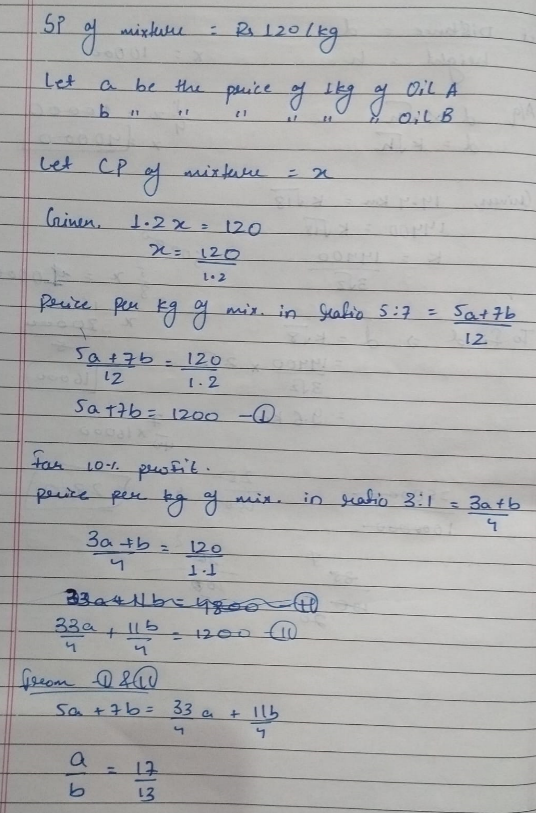 SP of mixture = Rs 120/kg
Let a be the price of 1kg of Oil A
b " " " " " " Oil B
Let CP of mixture = x
Given. 1.2x = 120
x = 120/1.2
Price per kg of mix. in ratio 5:7 = (5a+7b)/12
(5a+7b)/12 = 120/1.2
5a+7b = 1200 -①
For 10% profit.
price per kg of mix. in ratio 3:1 = (3a+b)/4
(3a+b)/4 = 120/1.1
33a+11b = 4800 -⑪
33a/4 + 11b/4 = 1200 -⑪
From ① & ⑪
5a+7b = 33/4 a + 11b/4
a/b = 17/13